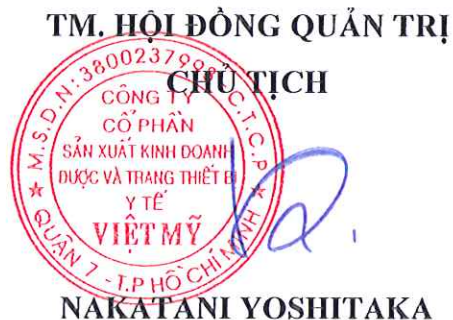 TM. HỘI ĐỒNG QUẢN TRỊ
CHỦ TỊCH
M.S.D.N: 3800237998 C.T.C.P
CÔNG TY
CỔ PHẦN
SẢN XUẤT KINH DOANH
DƯỢC VÀ TRANG THIẾT BỊ
Y TẾ
VIỆT MỸ
QUẬN 7 - T.P HỒ CHÍ MINH
NAKATANI YOSHITAKA